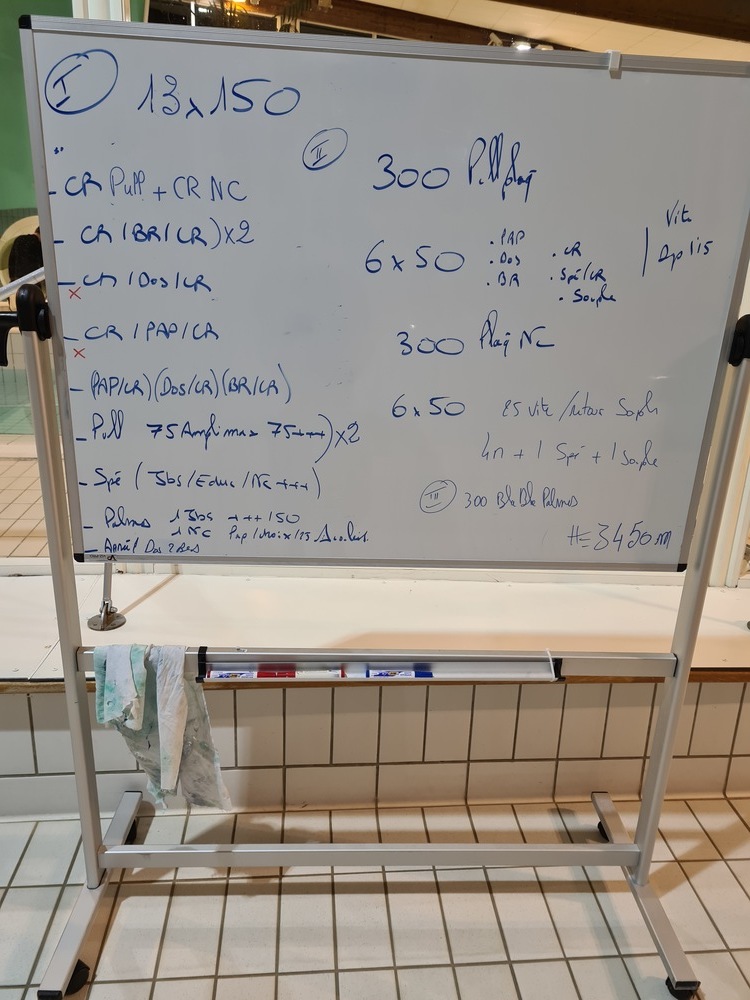 I 13x150
- CR Pull + CR NC
- CR/BR/CR)x2
- CR/Dos/CR
- CR/PAP/CR
- (PAP/CR)(Dos/CR)(BR/CR)
- Pull 75 Ampli max 75+++)x2
- Spé (Jbs/Educ/NC+++)
- Palmes 1 Jbs +++ 150
1 NC Pap/choix/25
- Dos 2 Bras
II 300 Pull plaq
6x50
. PAP
. Dos
. BR
. CR
. Spé/CR
. Souple
Vite
Dp 1'15
300 Plaq NC
6x50 25 vite/retour Souple
4n + 1 Spé + 1 Souple
III 300 Bla Bla Palmes
#=3450m